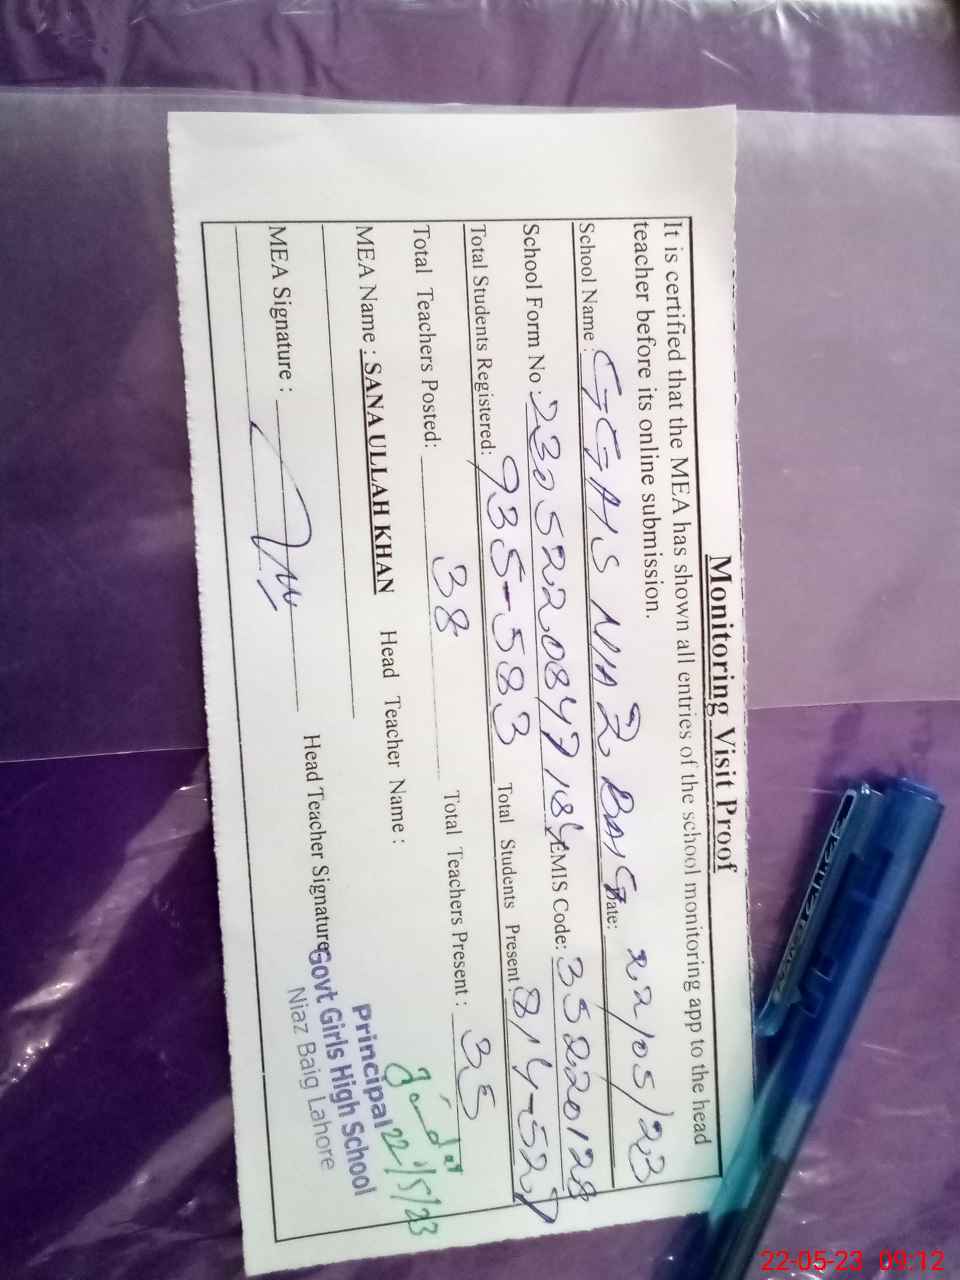 Monitoring Visit Proof
It is certified that the MEA has shown all entries of the school monitoring app to the head
teacher before its online submission.
School Name : GGHS NIAZ BAIG Date: 22/05/23
School Form No. 23052208497184 EMIS Code: 35220128
Total Students Registered: 935-583 Total Students Present 814-527
Total Teachers Posted: 38 Total Teachers Present : 35
MEA Name : SANA ULLAH KHAN Head Teacher Name :
MEA Signature : Head Teacher Signature
22/5/23
Principal
Govt Girls High School
Niaz Baig Lahore
22-05-23 09:12